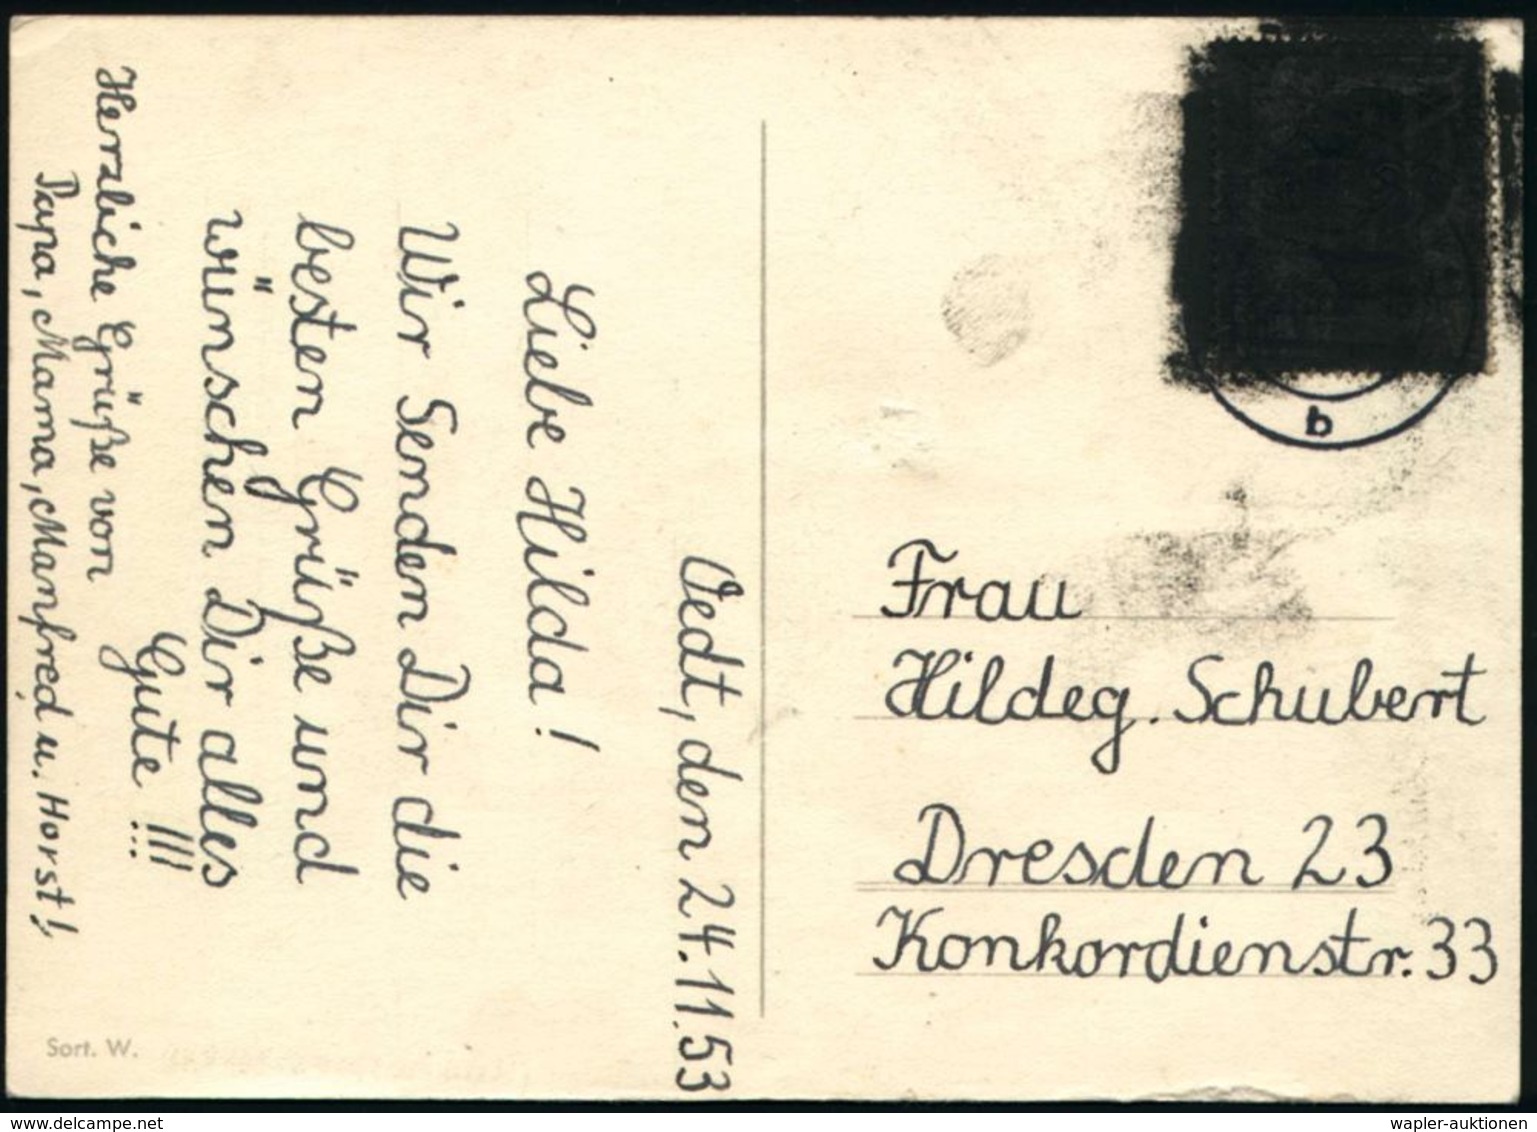 Oedt, den 24.11.53
Liebe Hilda!
Wir Senden Dir die
besten Grüße und
wünschen Dir alles
Gute !!!!
Herzliche Grüße von
Papa, Mama, Manfred u. Horst!
Sort. W.
b
Frau
Hildeg. Schubert
Dresden 23
Konkordienstr. 33
www.delcampe.net
wapler-auktionen